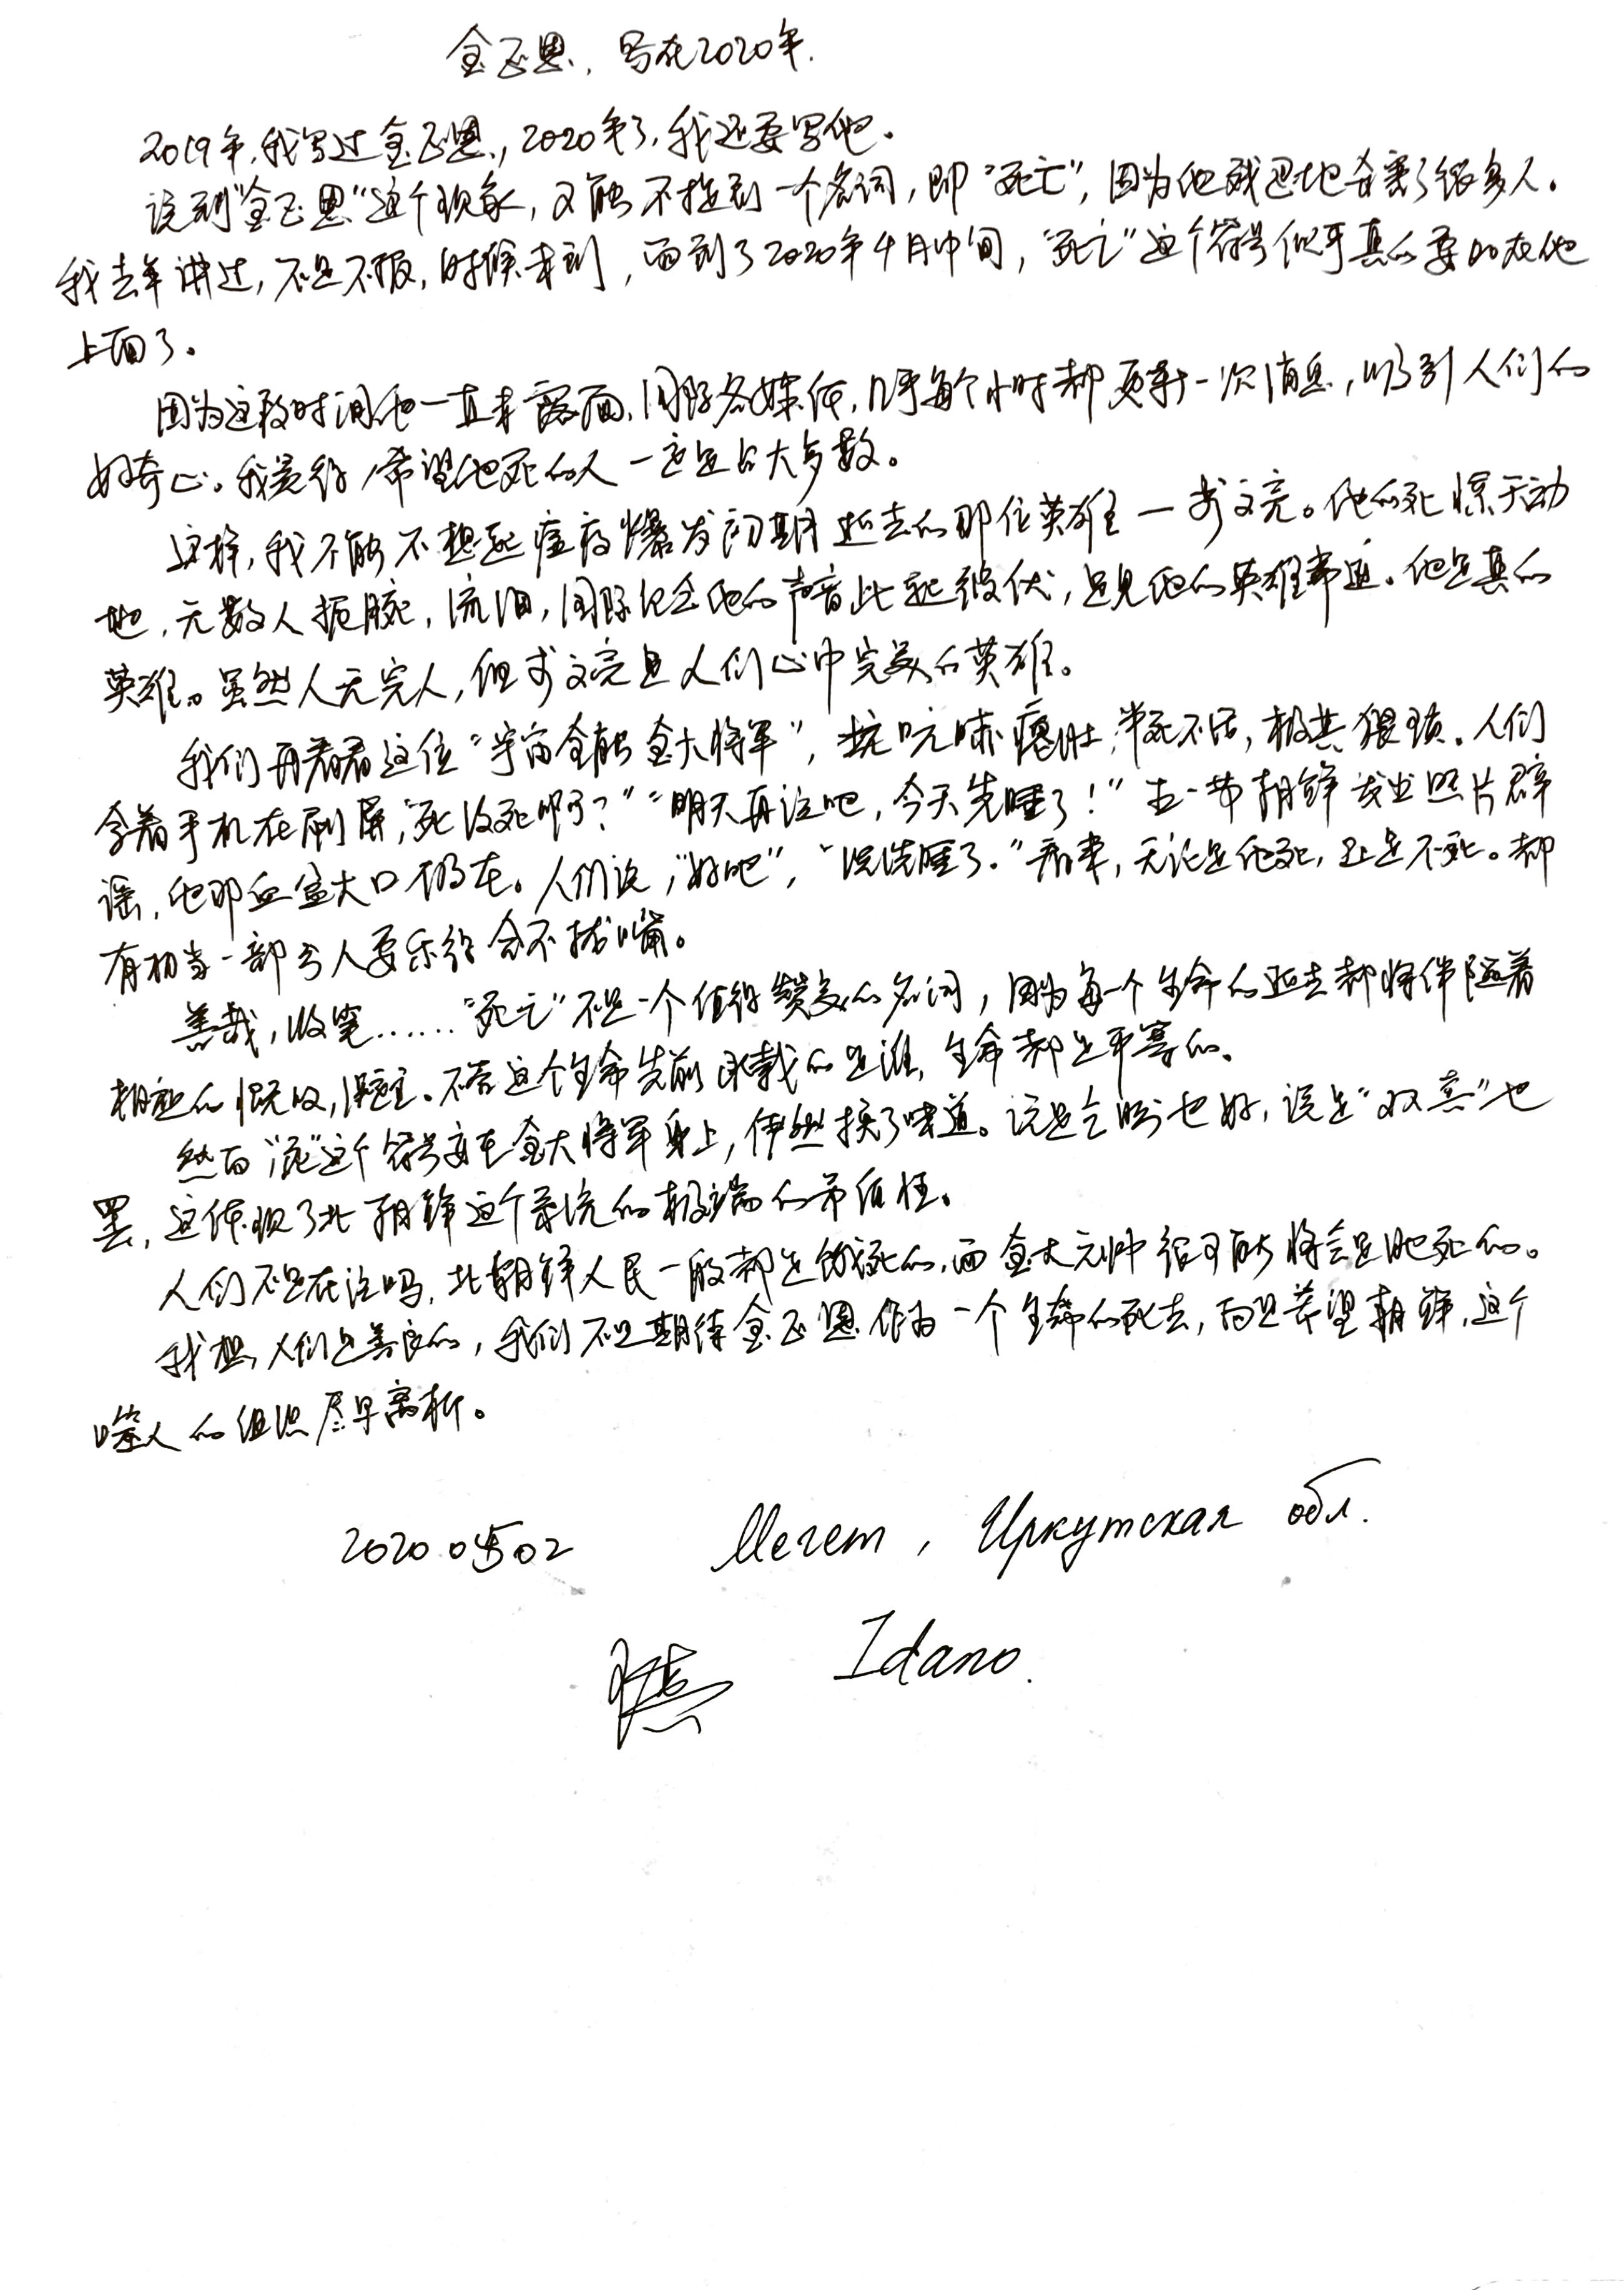 金正恩,写在2020年.
2019年,我写过金正恩,2020年了,我还要写他。
说到"金正恩"这个现象,又能不提到一个名词,即"死亡",因为他残忍地杀害了很多人。
我去年讲过,不是不报,时候未到,而到了2020年4月中旬,"死亡"这个符号似乎真的要加在他
上面了。
因为这段时间他一直未露面,国际各媒体,几乎每个小时都更新一次消息,吸引人们的
好奇心。我觉得,希望他死的人一定是占大多数。
这样,我不能不想起瘟疫爆发初期逝去的那位英雄一李文亮。他的死惊天动
地,无数人扼腕,流泪,国际纪念他的声音此起彼伏,足见他的英雄事迹。他是真的
英雄。虽然人无完人,但李文亮是人们心中完美的英雄。
我们再看看这位"宇宙全能金大将军",半死不活,极其猥琐。人们
拿着手机在刷屏,"死没死啊?""明天再说吧,今天先睡了!"五一节朝鲜发出照片辟
谣,他那血盆大口仍在。人们说,"好吧","洗洗睡了."看来,无论是他死,还是不死。都
有相当一部分人要乐得合不拢嘴。
善哉,收笔……"死亡"不是一个值得赞美的名词,因为每一个生命的逝去都将伴随着
相应的慨叹,不管这个生命先前承载的是谁,生命都是平等的。
然而"死"这个符号安在金大将军身上,俨然换了味道。说是也好,说是"双喜"也
罢,这体现了北朝鲜这个系统的极端的矛盾性。
人们不是在说吗,北朝鲜人民一般都是饿死的,而金大元帅很可能将会是肥死的。
我想,人们是善良的,我们不是期待金正恩作为一个生命的死去,而是希望朝鲜,这个
噬人的组织尽早离析。
20200502 Мегет, Иркутская обл.
Idano.